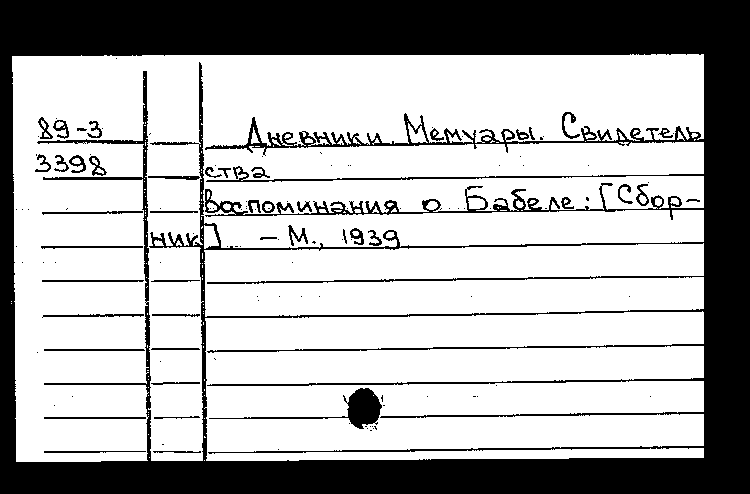 89-3 Дневники. Мемуары. Свидетель
3398 ства
Воспоминания о Бабеле: [Сбор-
ник] – М., 1939